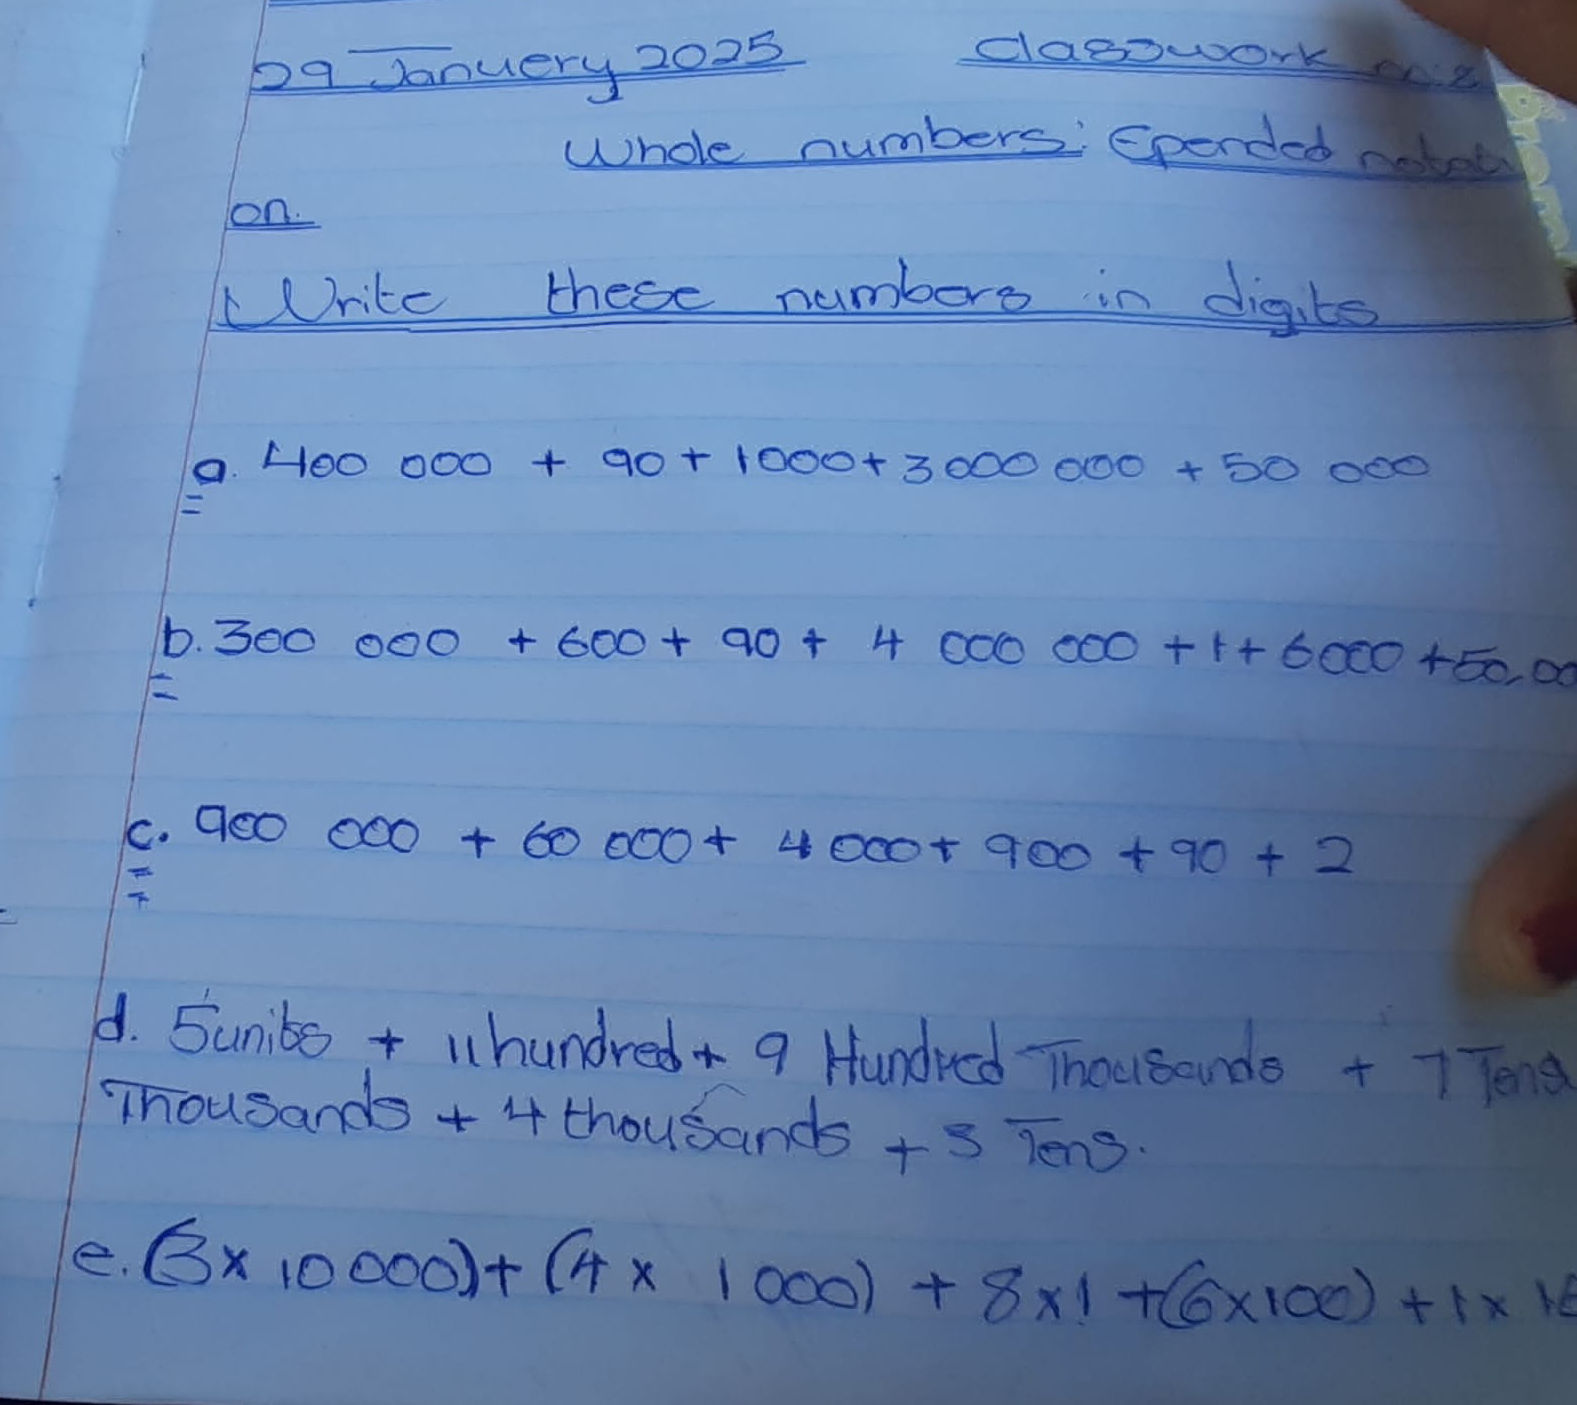 29 January 2025 Classwork
Whole numbers: Epended notati
on.
Write these numbers in digits
a. 400 000 + 90 + 1000 + 3 000 000 + 50 000
=
b. 300 000 + 600 + 90 + 4 000 000 + 1 + 6000 + 50,00
=
c. 900 000 + 60 000 + 4 000 + 900 + 90 + 2
=
=
d. 5 units + 11 hundred + 9 Hundred Thousands + 7 Tens
Thousands + 4 thousands + 3 Tens.
e. (3 x 10 000) + (4 x 1 000) + 8 x 1 + (6 x 100) + 1 x 10